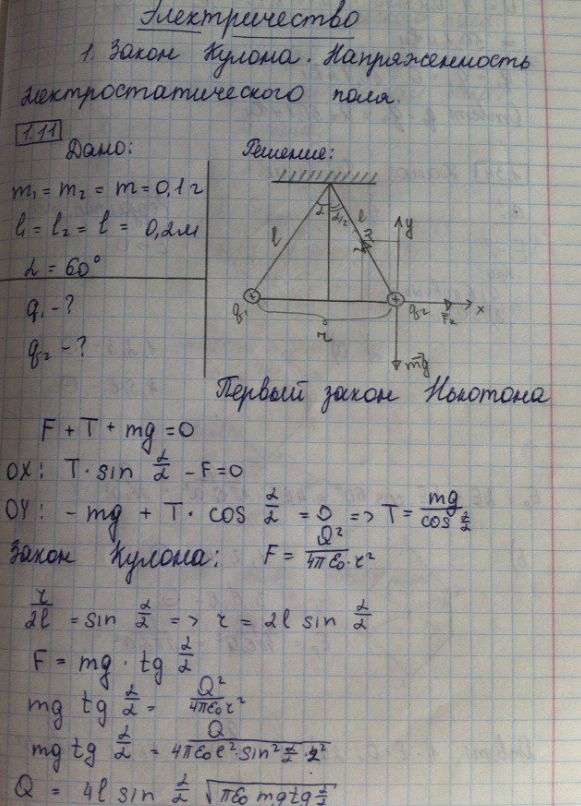 Электричество
1. Закон Кулона. Напряженность
электростатического поля.
1.11
Дано:
Решение:
m₁ = m₂ = m = 0,1 г
l₁ = l₂ = l = 0,2 м
α = 60°
q₁ - ?
q₂ - ?
α
α/2
l
l
y
q₁
q₂
F₂
x
r
mg
Первый закон Ньютона
F + T + mg = 0
OX: T · sin α/2 - F = 0
OY: - mg + T · cos α/2 = 0 => T = mg / cos α/2
Закон Кулона: F = Q² / 4πε₀ · r²
r/2l = sin α/2 => r = 2l sin α/2
F = mg · tg α/2
mg tg α/2 = Q² / 4πε₀r²
mg tg α/2 = Q / 4πε₀l² · sin² α/2 · 2²
Q = 4l sin α/2 √πε₀ mg tg α/2